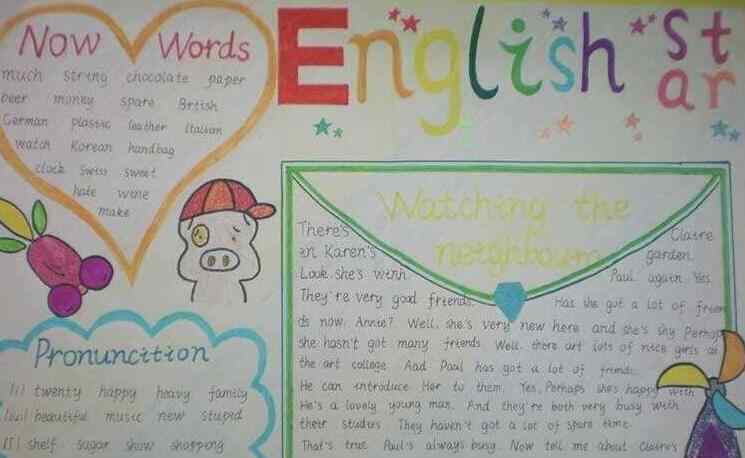 English
st
ar
Now Words
much string chocolate paper
beer money spare British
German plastic leather Italian
watch Korean handbag
clock Swiss sweet
hate wine
make
Pronuncition
[i] twenty happy heavy family
beautiful music new stupid
[ʃ] shelf sugar show shopping
Watching the
neighbours
There's Claire
in Karen's garden.
Look, she's with Paul again. Yes.
They're very good friends. Has she got a lot of frien
ds now, Annie? Well, she's very new here and she's shy Perhap
she hasn't got many friends. Well, there art lots of nice girls at
the art college. And Paul has got a lot of friends.
He can introduce Her to them. Yes, Perhaps she's happy with
He's a lovely young man. And they're both very busy with
their studies They haven't got a lot of spare time.
That's true. Paul's always busy. Now tell me about Claire's